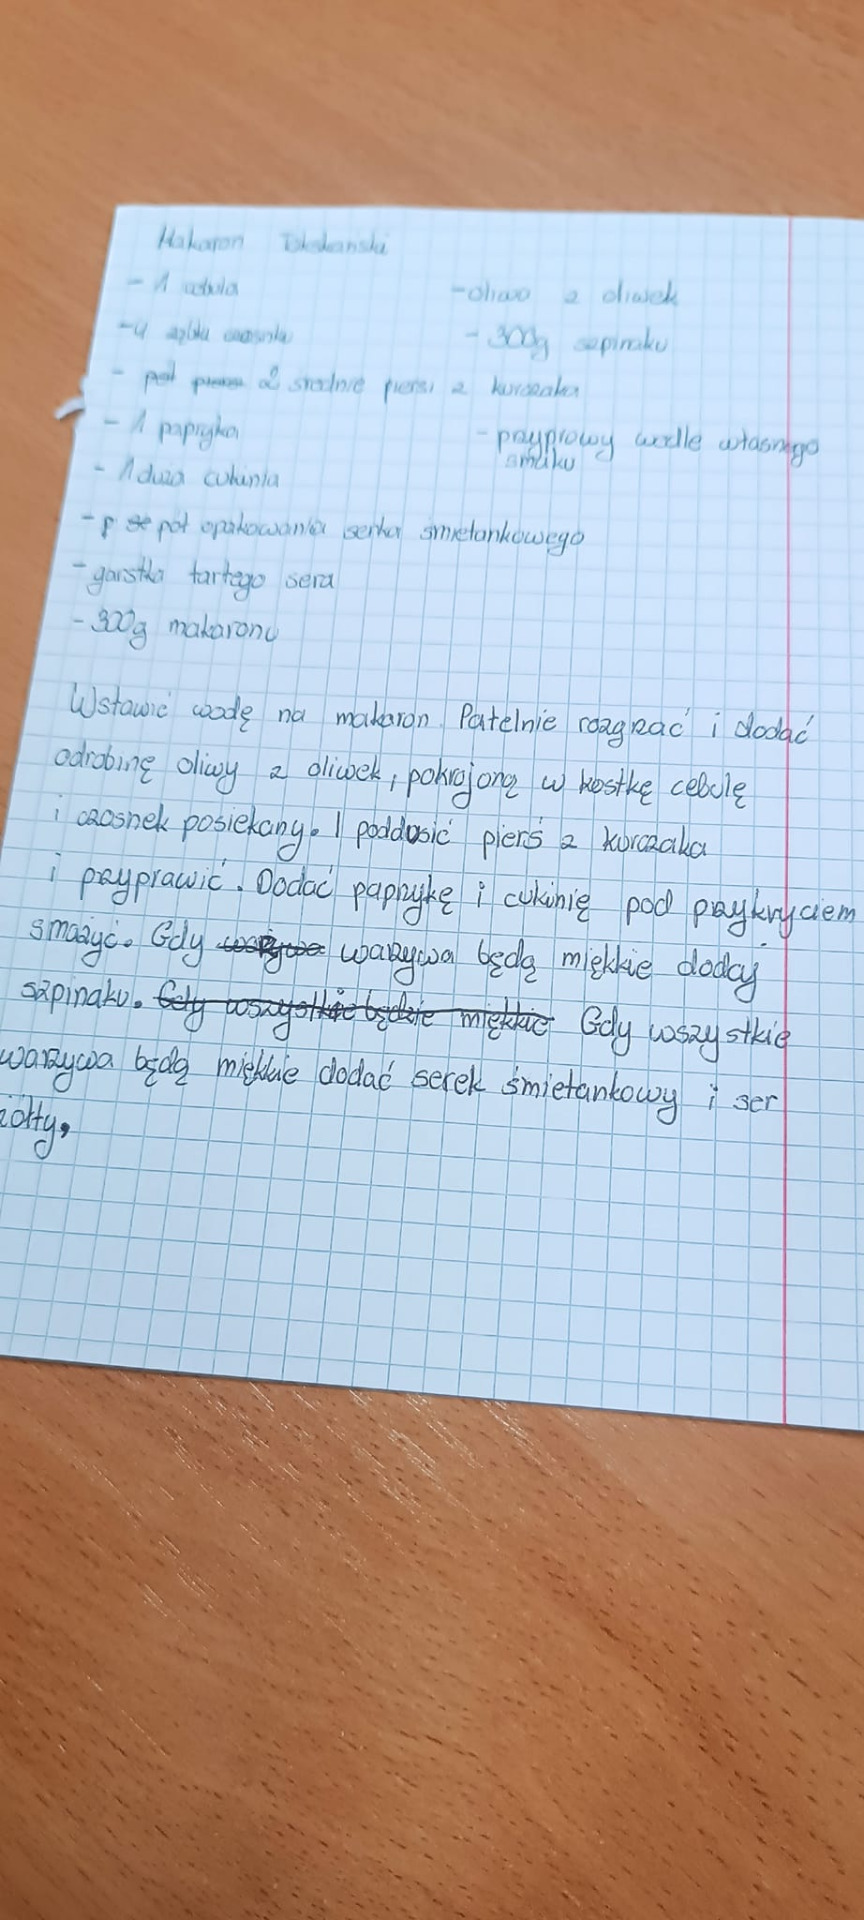 Makaron Toskański
- 1 cebula
- oliwa z oliwek
- 4 ząbki czosnku
- 300g szpinaku
- pół 2 średnie piersi z kurczaka
- 1 papryka
- przyprawy wedle własnego
smaku
- 1 duża cukinia
- pół opakowania serka śmietankowego
- garstka tartego sera
- 300g makaronu
Wstawić wodę na makaron. Patelnie rozgrzać i dodać
odrobinę oliwy z oliwek, pokrojoną w kostkę cebulę
i czosnek posiekany. I poddusić pierś z kurczaka
i przyprawić. Dodać paprykę i cukinię pod przykryciem
smażyć. Gdy warzywa warzywa będą miękkie dodaj
szpinaku. Gdy wszystkie będzie miękkie Gdy wszystkie
warzywa będą miękkie dodać serek śmietankowy i ser
żółty.